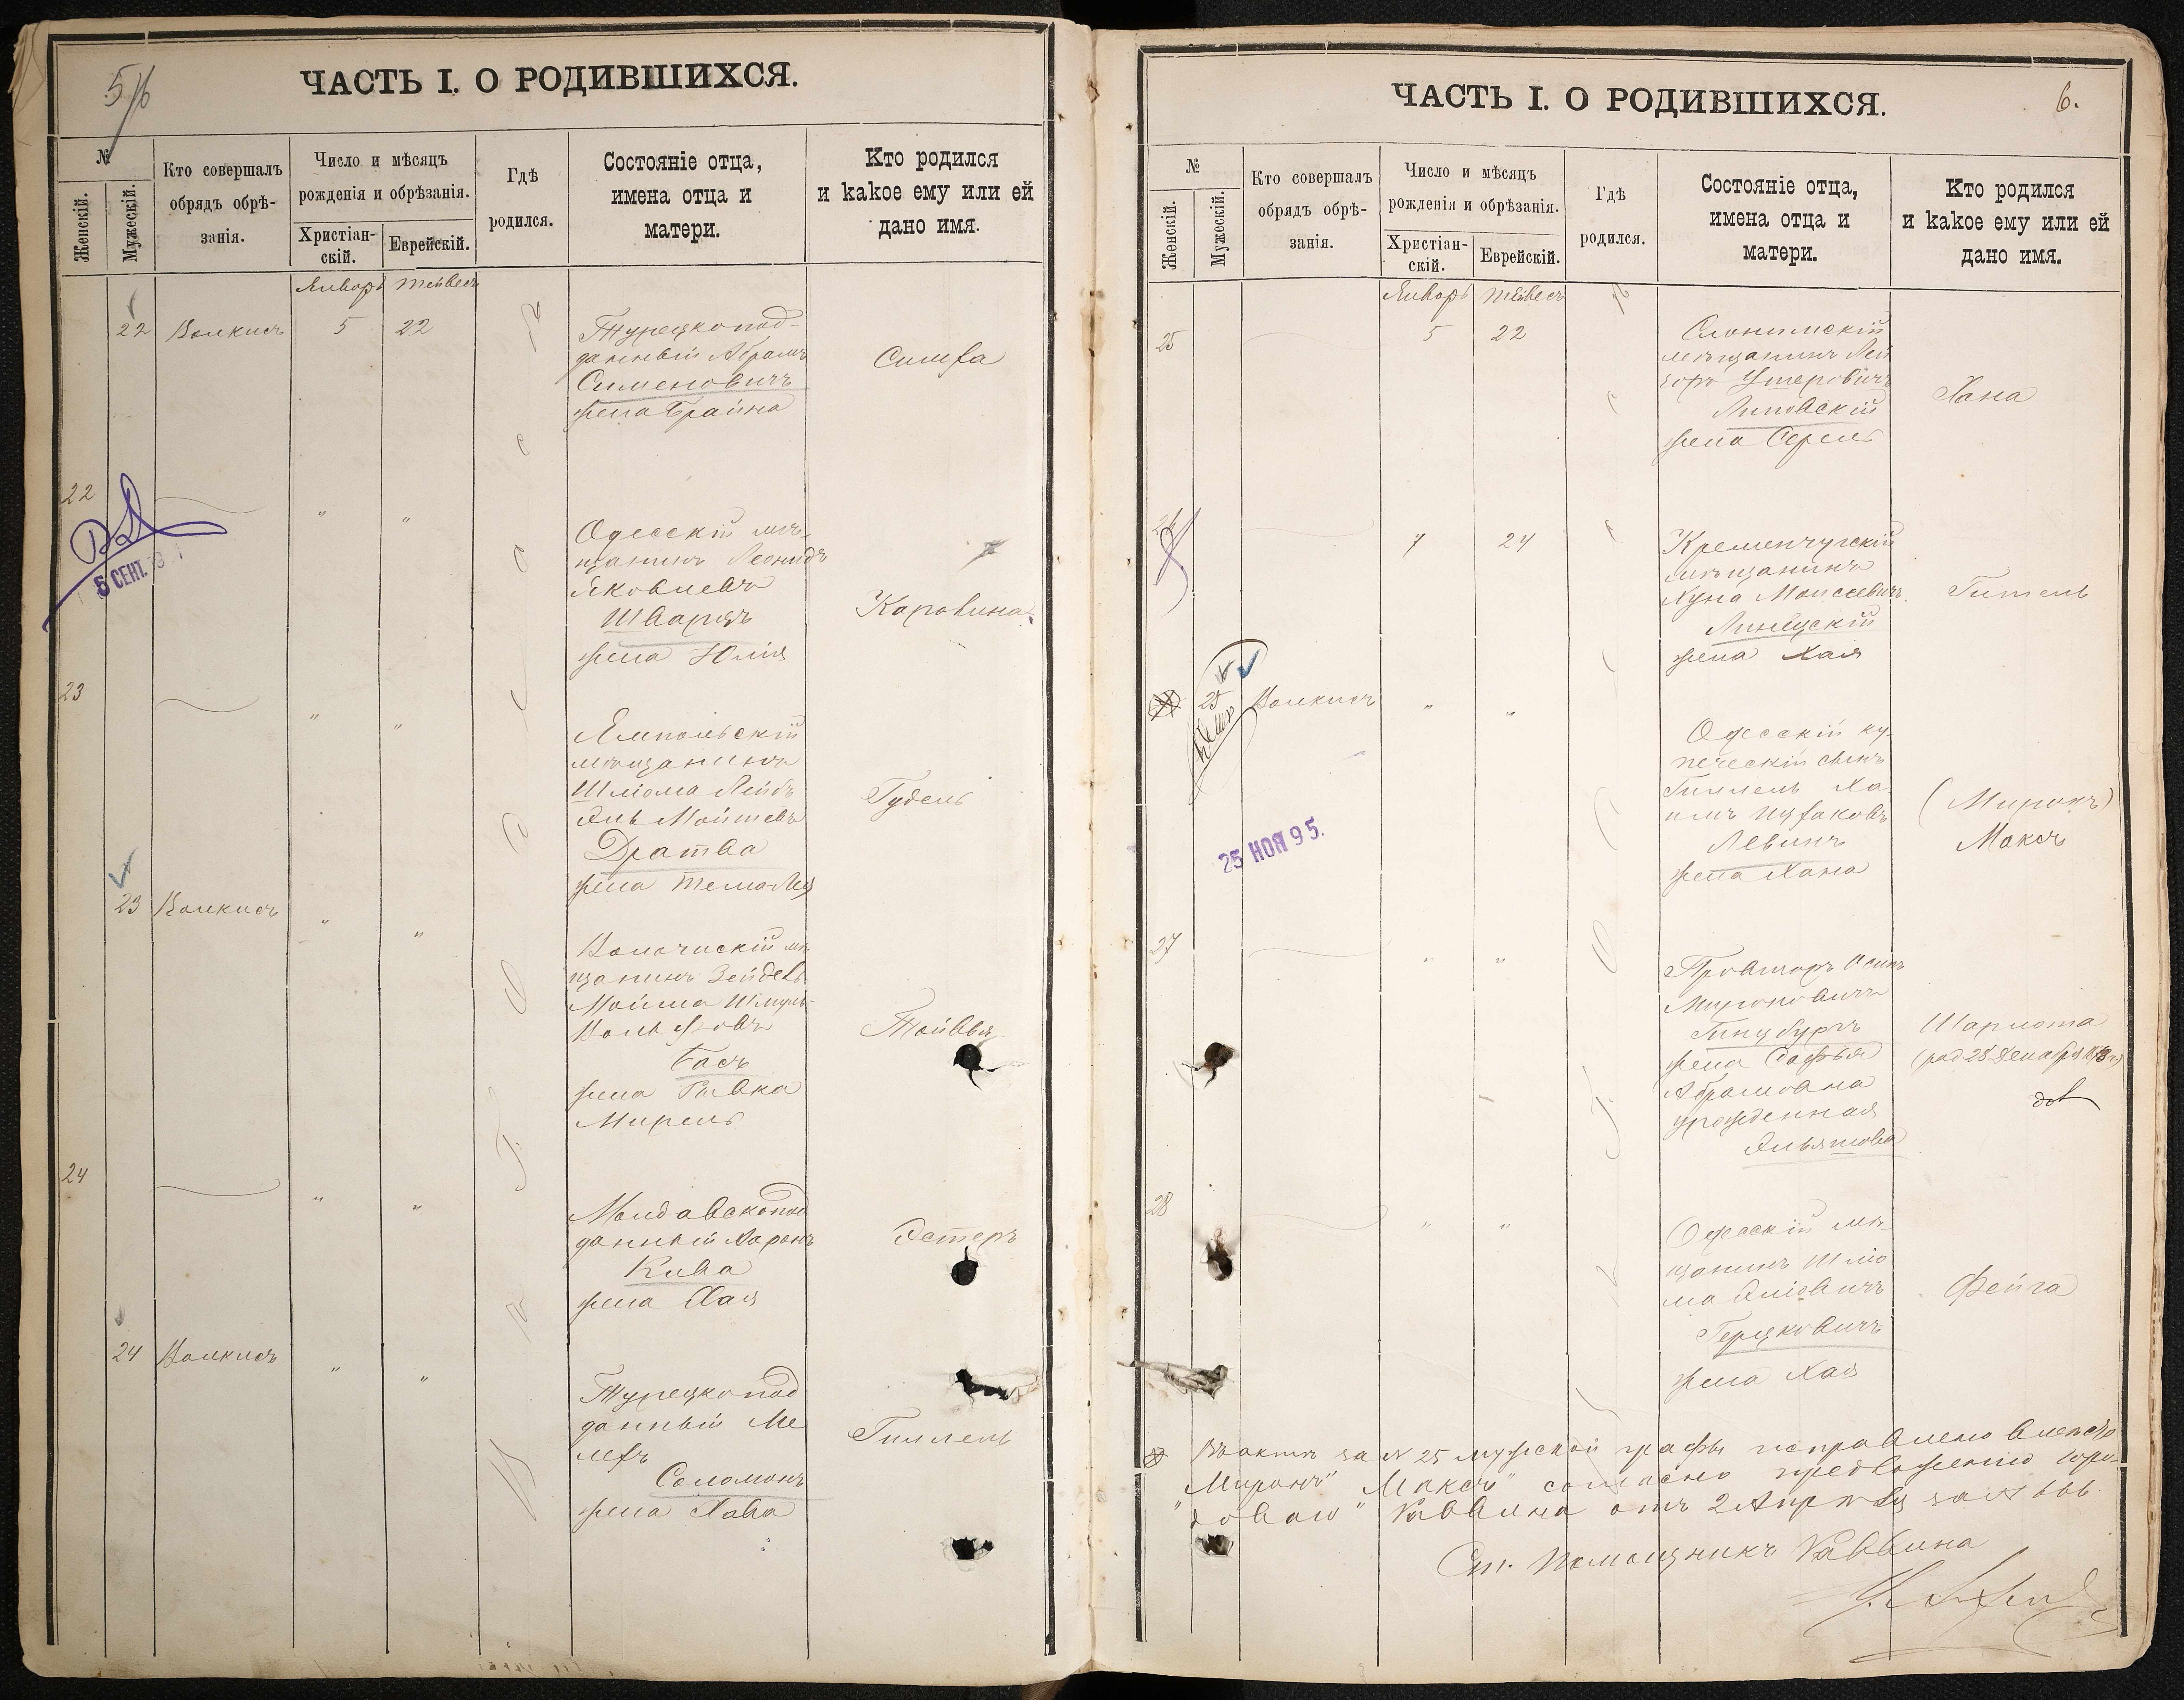 5/6
ЧАСТЬ I. О РОДИВШИХСЯ.
№
Женскій.
Мужескій.
Кто совершалъ
обрядъ обрѣ-
занія.
Число и мѣсяцъ
рожденія и обрѣзанія.
Христіан-
скій.
Еврейскій.
Гдѣ
родился.
Состояніе отца,
имена отца и
матери.
Кто родился
и какое ему или ей
дано имя.
Январь Тейвесъ
22 Волкисъ 5 22
Турецкопод-
данный Абрамъ
Сименовичъ
жена Брайна
Симха
22
" "
5 СЕНТ.
Одесскій мѣ-
щанинъ Леонидъ
Яковлевъ
Шварцъ
жена Юлія
Каролина
23
" "
Ямпольскій
мѣщанинъ
Шлiома Лейбъ
Эль Мойшевъ
Дратва
жена Тема Лея
Гудель
23 Волкисъ
" "
Волочискій мѣ
щанинъ Зейдель
Мойша Шмуль-
Вольфовъ
Басъ
жена Ривка
Мирель
Тойвья
24
" "
Молдавскопод
данный Аронъ
Кива
жена Хая
Эстеръ
24 Волкисъ
" "
Турецкопод
данный Ме
лехъ
Соломонъ
жена Хава
Гиллель
В г. Одессѣ
ЧАСТЬ I. О РОДИВШИХСЯ.
6.
№
Женскій.
Мужескій.
Кто совершалъ
обрядъ обрѣ-
занія.
Число и мѣсяцъ
рожденія и обрѣзанія.
Христіан-
скій.
Еврейскій.
Гдѣ
родился.
Состояніе отца,
имена отца и
матери.
Кто родился
и какое ему или ей
дано имя.
Январь Тейвесъ
25 5 22
Слонимскій
мѣщанинъ Лей
зоръ Ушеровичъ
Липовскій
жена Серель
Хана
26 7 24
Кременчугскій
мѣщанинъ
Хуна Моисеевичъ
Линецкій
жена Хая
Гитель
25 Волкисъ
" "
25 НОЯ 95.
Одесскій ку-
печескій сынъ
Гиллель Ха
имъ Ицхаковъ
Левинъ
жена Хана
(Миронъ)
Максъ
27
" "
Провизоръ Осипъ
Мироновичъ
Гинцбургъ
жена Софья
Абрамовна
урожденная
Шарлота
28
" "
Одесскій мѣ-
щанинъ Шлiо
ма Элiовичъ
Герцковичъ
жена Хая
Фейга
Въ актѣ за № 25 мужской графы исправлено вмѣсто
"Миронъ" "Максъ" согласно предложенію Горо-
дового Раввина отъ 2 Апрѣля за № 666
Ст. Помощникъ Раввина